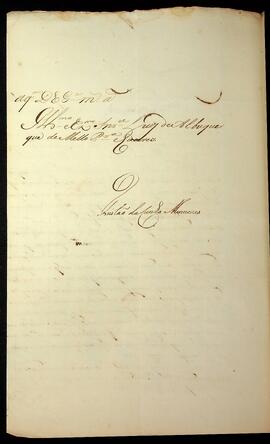 aq.m D.s G.e m.s a.s
Ill.mo e Ex.mo Snr. Luiz de Albuquer
que de Mello Pr.a e Caceres
O
da Cunha Menezes